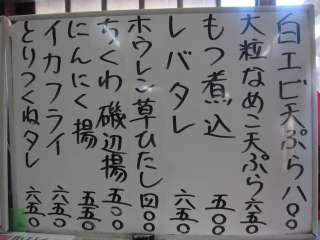 白エビ天ぷら 八〇〇
大粒なめこ天ぷら 六五〇
もつ煮込 五〇〇
レバタレ 六五〇
ホウレン草ひたし 四〇〇
ちくわ磯辺揚 五〇〇
にんにく揚 五五〇
イカフライ 六五〇
とりつくねタレ 六五〇